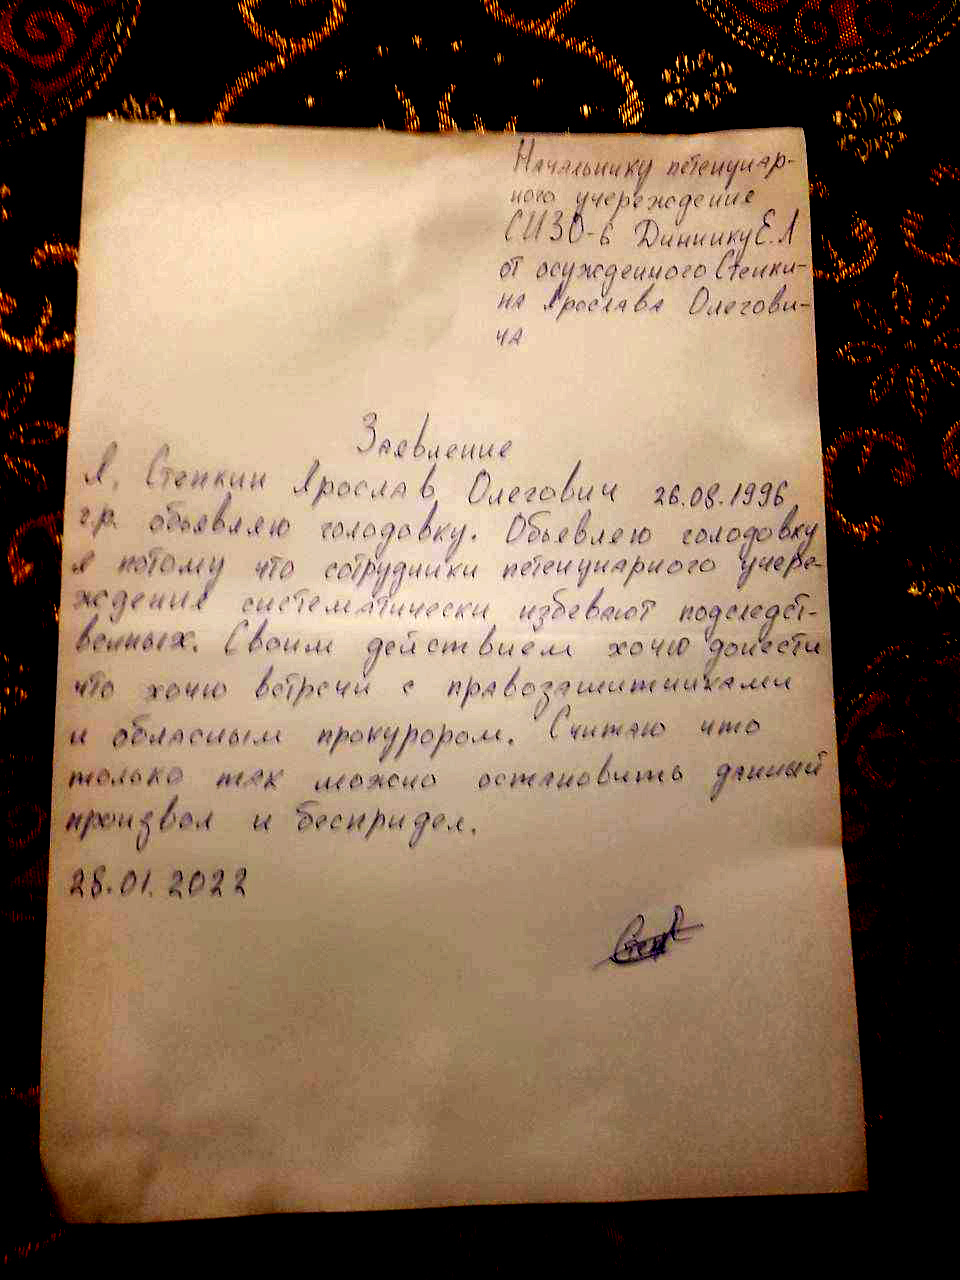 Начальнику петенциар-
ного учереждение
СИЗО-6 Диннику Е.Л
от осужденного Степки-
на Ярослава Олегови-
ча
Заявление
Я, Степкин Ярослав Олегович 26.08.1996
г.р. обьявляю голодовку. Обьевлею голодовку
я потому что сотрудники петенциарного учере-
ждения систематически избевают подследст-
венных. Своим действием хочю донести
что хочю встречи с правозашитниками
и обласным прокурором. Считаю что
только так можно остановить данный
произвол и беспридел.
28.01.2022